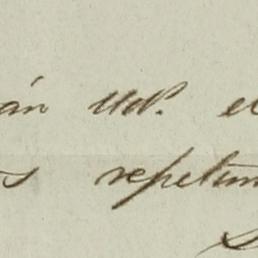 án Ud. e
s repetim